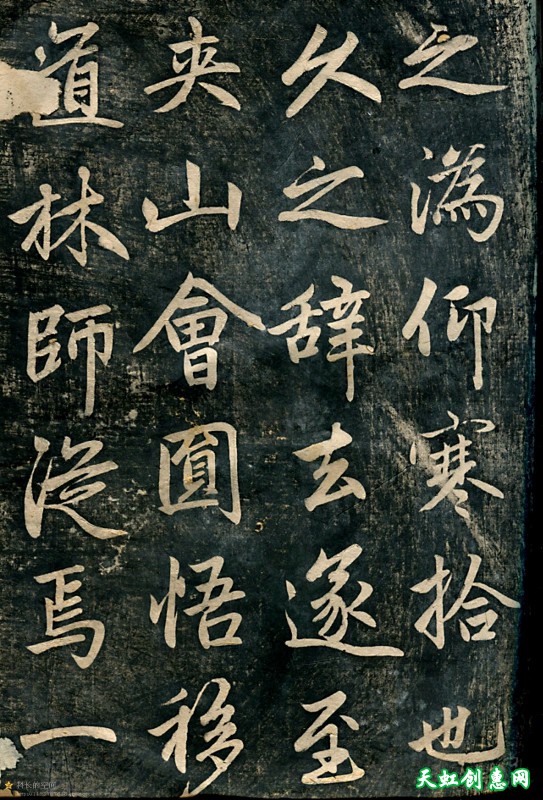 之溈仰寒拾也
久之辞去遂至
夹山會圓悟移
道林師從焉一
天虹创意网